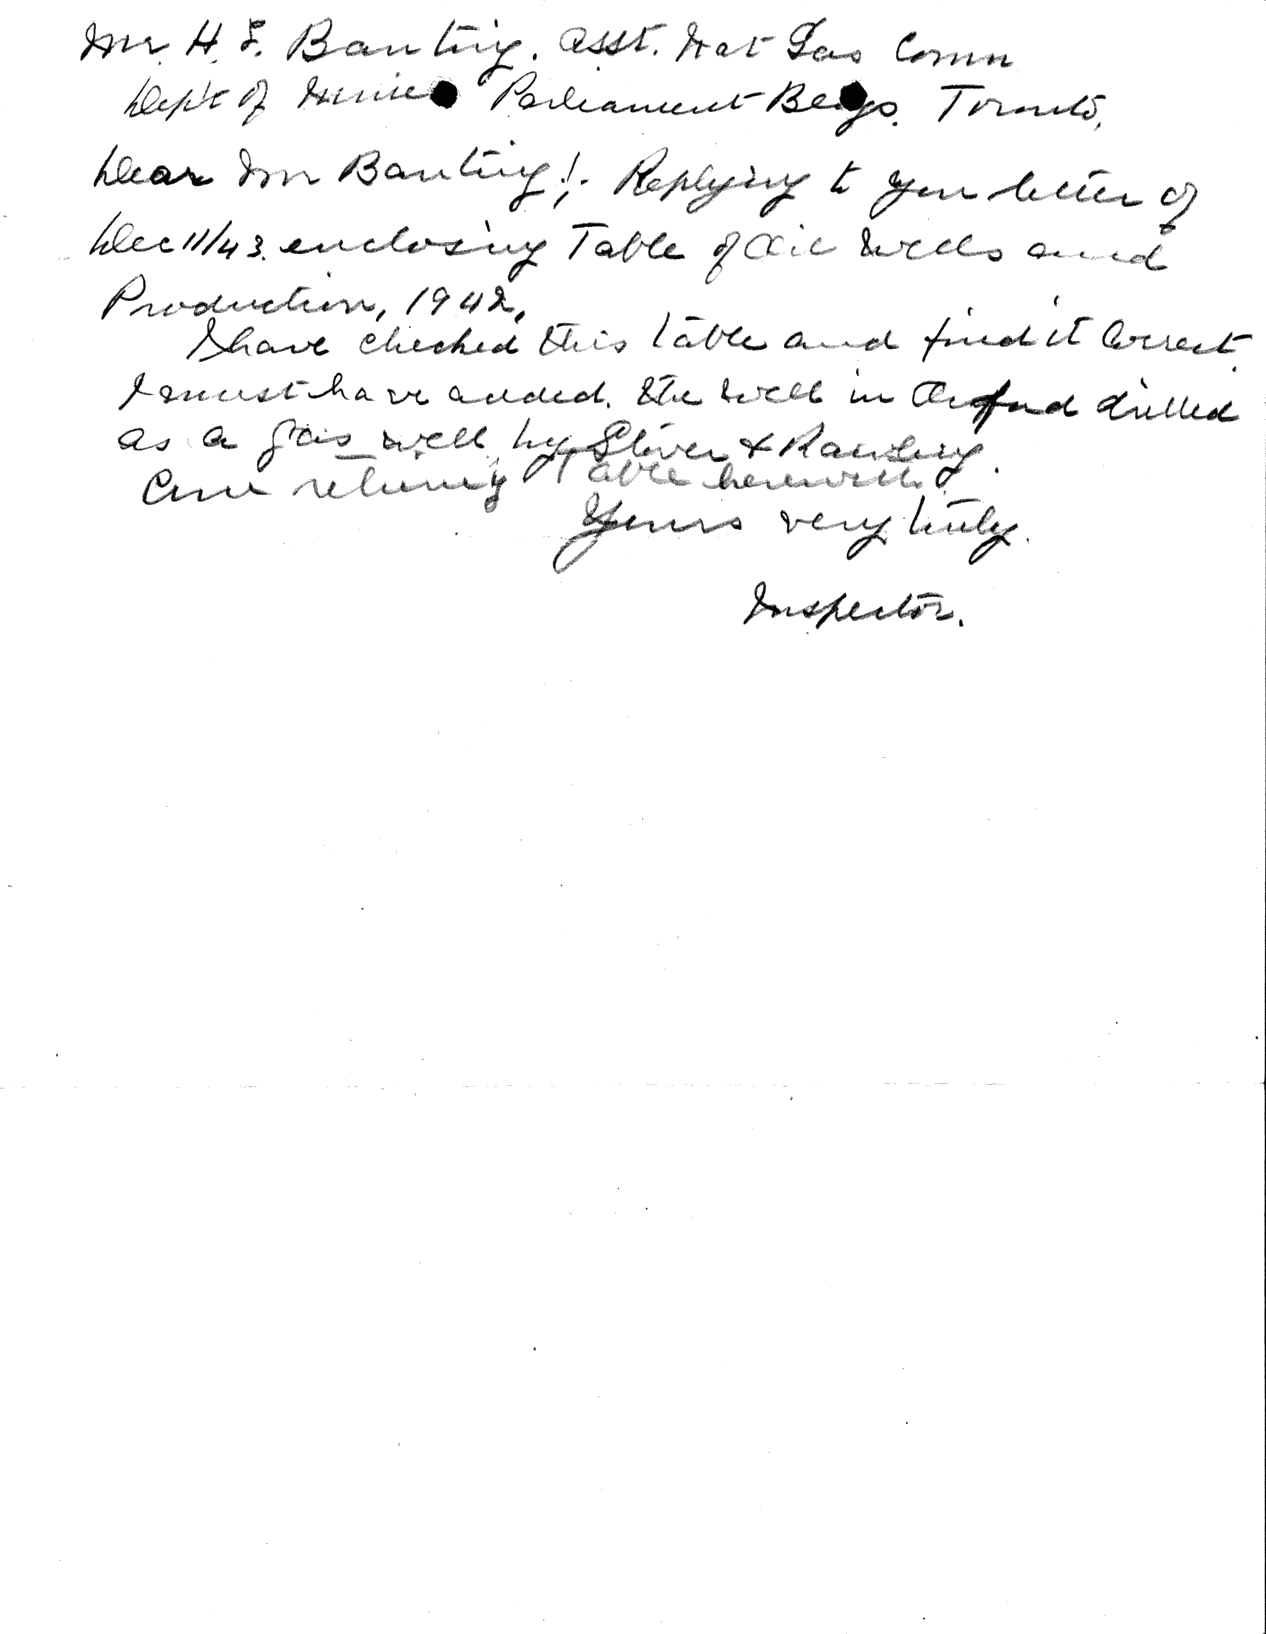 Mr. H. S. Banting. Asst. Nat Gas Comm
Dept of Mines Parliament Bldgs. Toronto,
Dear Mr Banting!, Replying to your letter of
Dec 11/43. enclosing Table of Oil Wells and
Production, 1942,
I have checked this table and find it Correct.
I must have added the well in Orford drilled
as a gas well by & 
Am returning Table herewith.
Yours very truly.
Inspector.